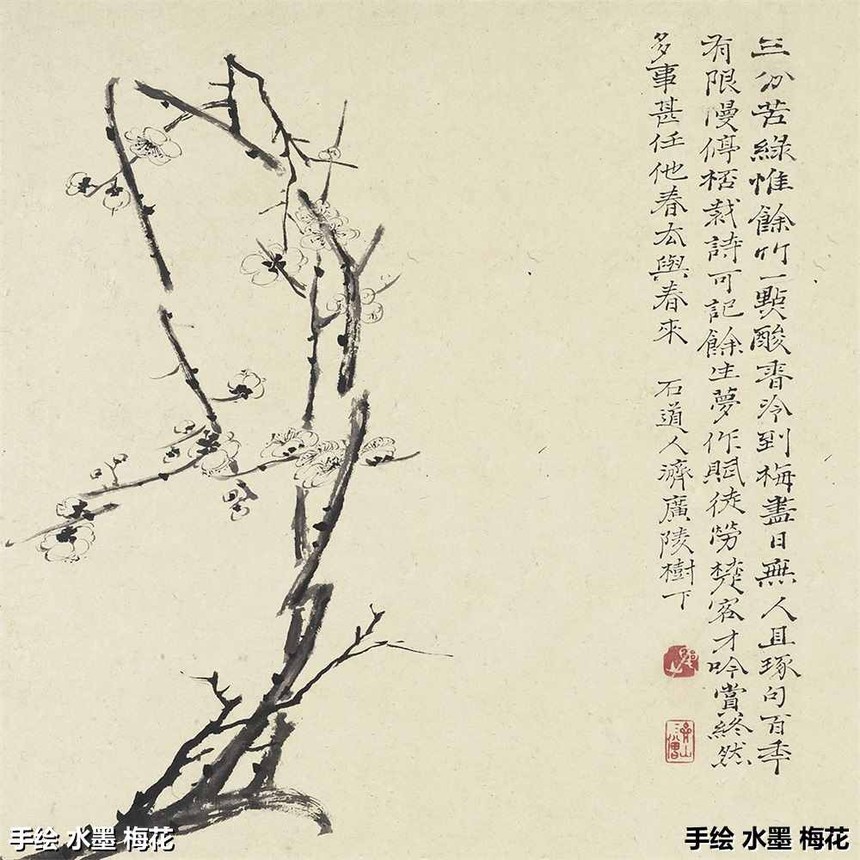 三分苦綠惟餘竹一點酸香冷到梅盡日無人且琢句百年
有限慢停桮裁詩可記餘生夢作賦徒勞楚客才吟賞終然
多事甚任他春去與春來 石道人濟廣陵樹下
手绘 水墨 梅花
手绘 水墨 梅花